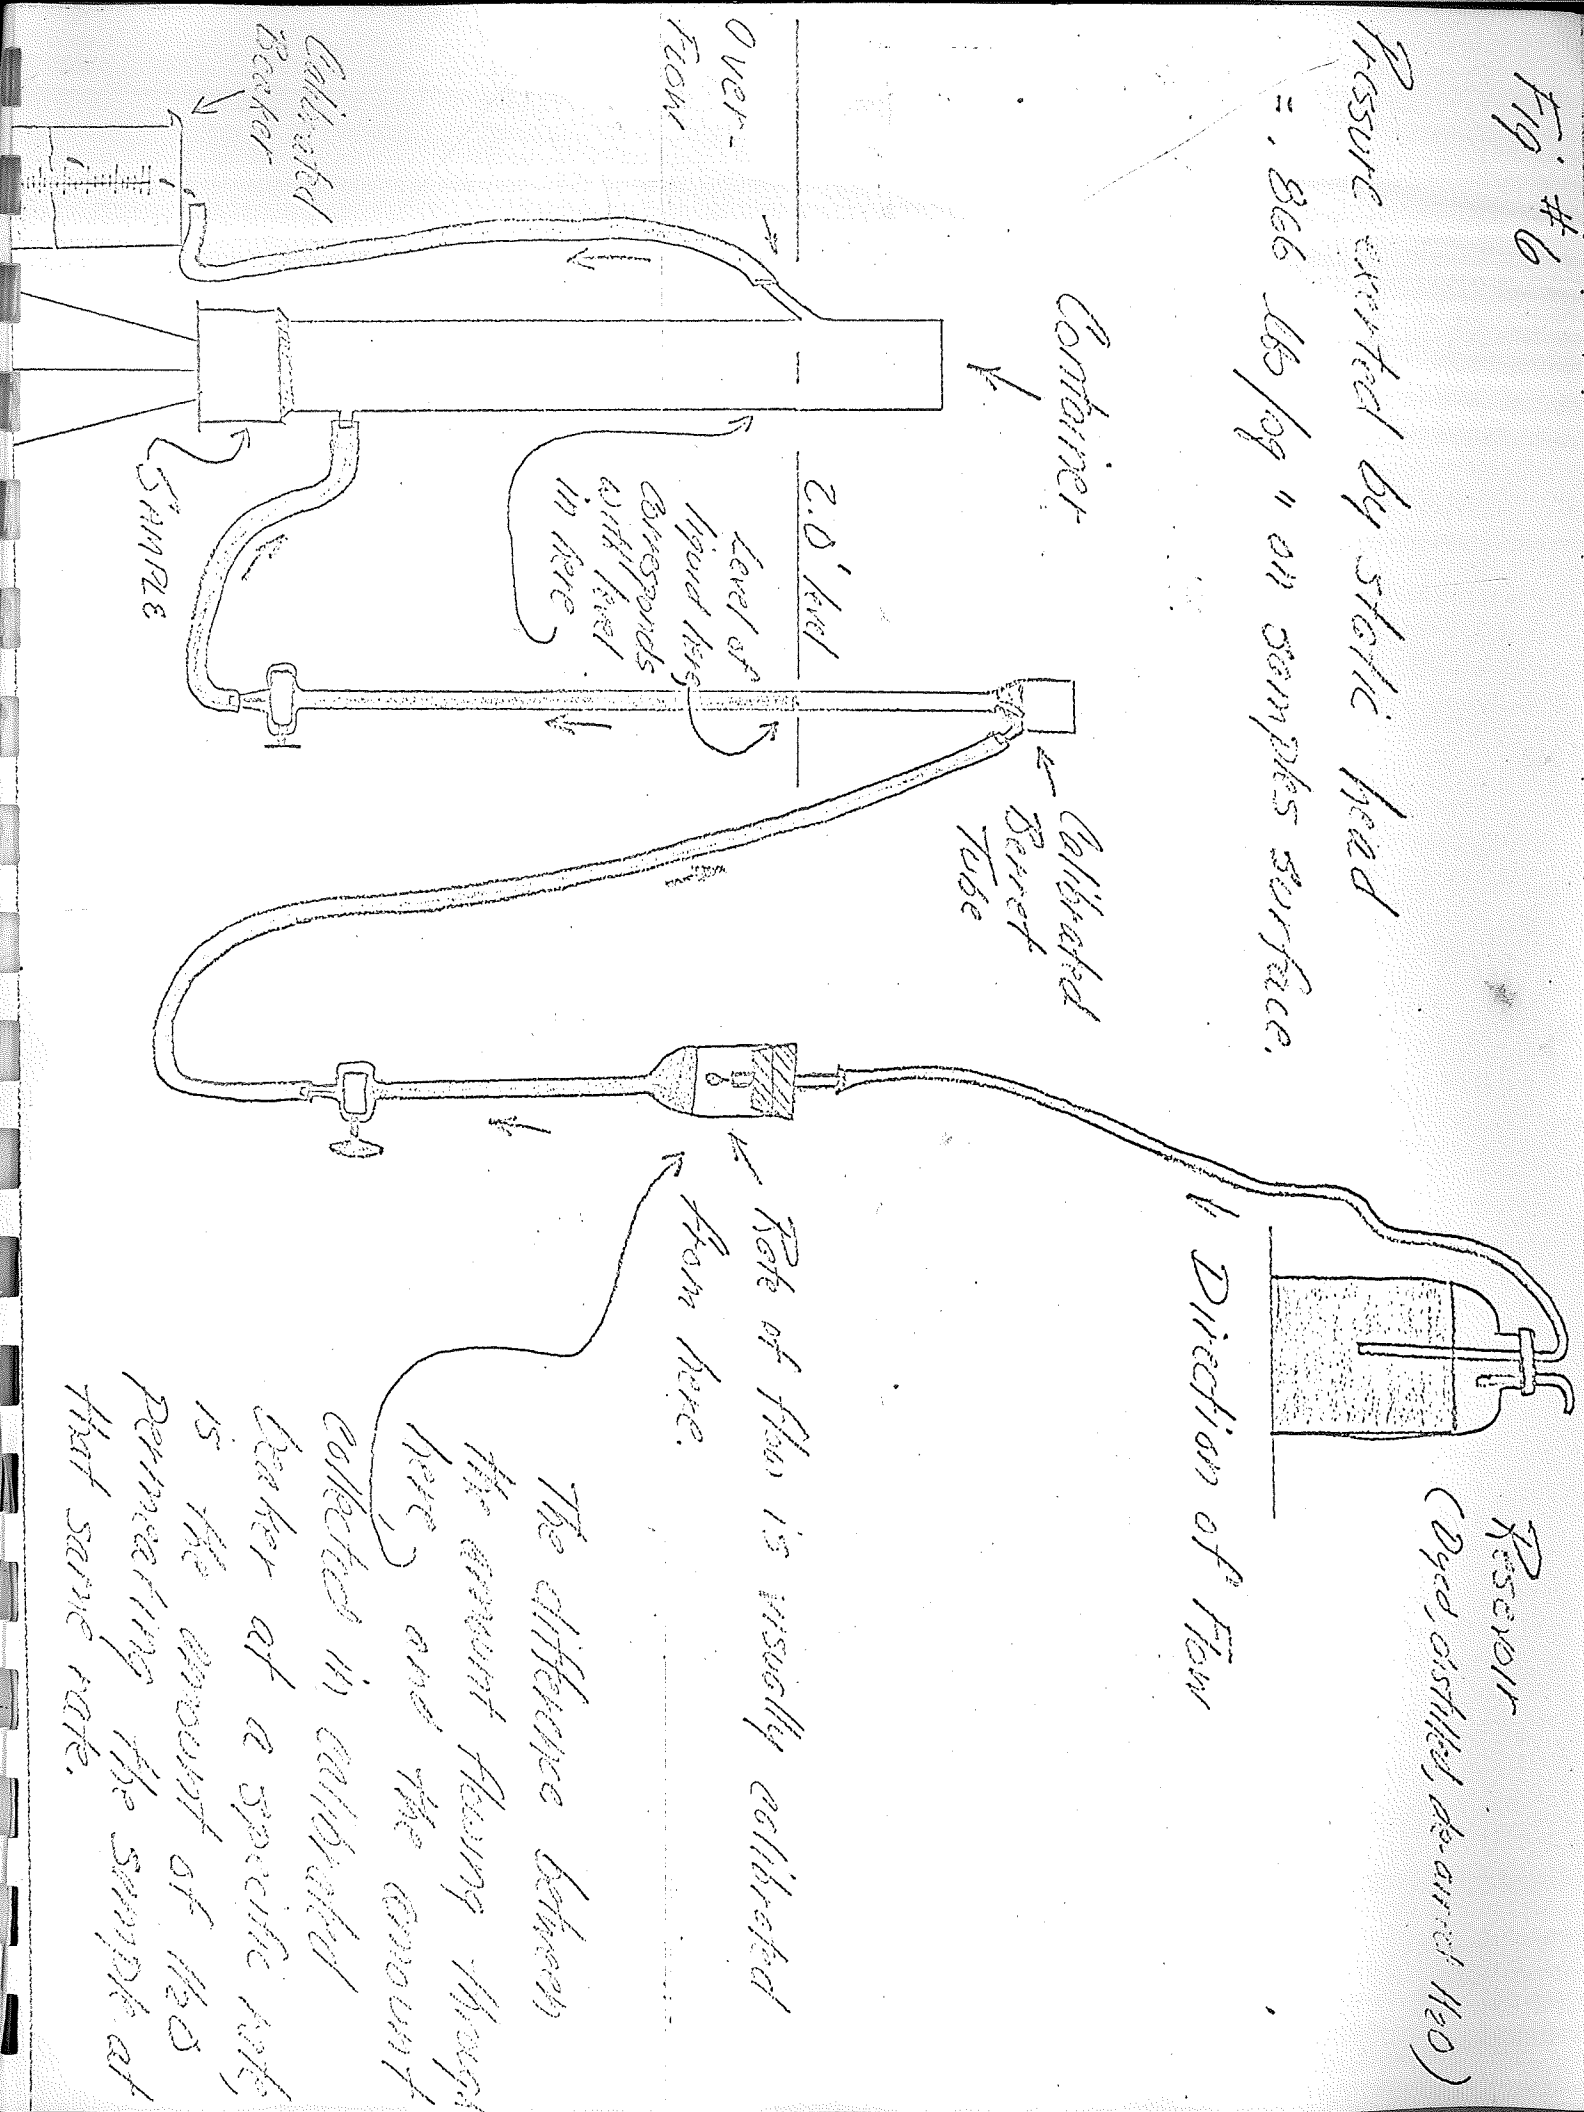 Fig. #6
Pressure exerted by static head
= .866 lbs/sq " on samples surface.
Reservoir
(Dyed, distilled, de-aired H2O)
Direction of Flow
Container
Calibrated
Burret
Tube
Over-
Flow
2.0' level
Level of
liquid here
corresponds
with level
in here
Rate of flow is visually calibrated
from here.
Calibrated
Beaker
SAMPLE
The difference between
the amount flowing through
here, and the amount
collected in calibrated
beaker at a specific rate,
is the amount of H2O
permeating the sample at
that same rate.